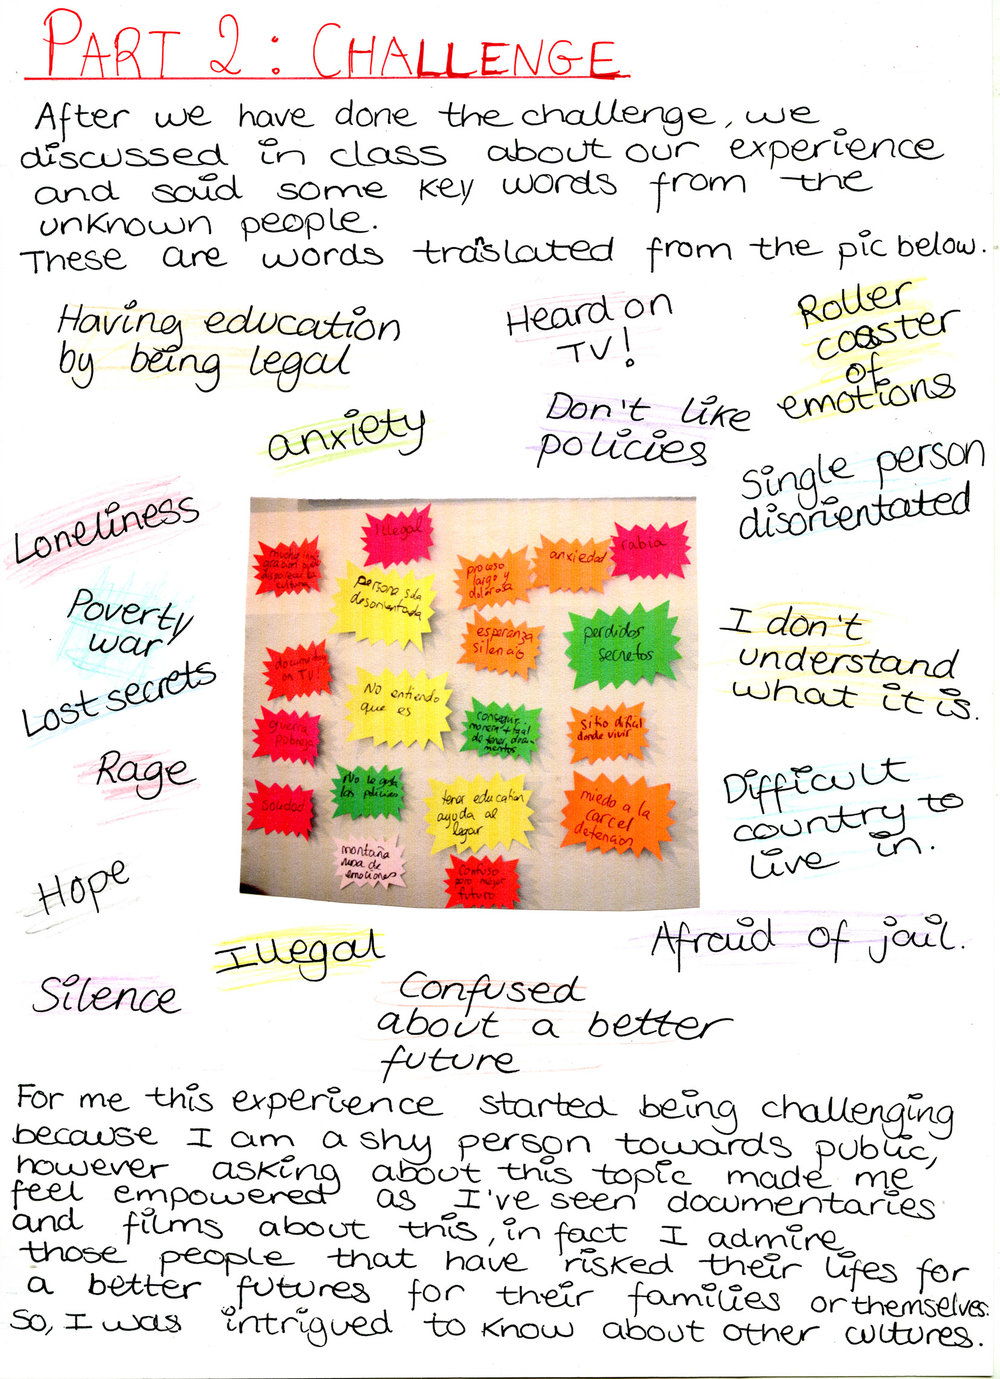 PART 2: CHALLENGE
After we have done the challenge, we
discussed in class about our experience
and said some key words from the
unknown people.
These are words traslated from the pic below.
Having education
by being legal
Heard on
TV!
Roller
coaster
of
emotions
anxiety
Don't like
policies
Single person
disorientated
Loneliness
Poverty
war
Lost secrets
Rage
Hope
Silence
Illegal
I don't
understand
what it is.
Difficult
country to
live in.
Afraid of jail.
Confused
about a better
future
illegal
rabia
anxiedad
proceso
largo y
doloroso
persona sola
desorientada
esperanza
silencio
perdidos
secretos
on TV!
No entiendo
que es
conseguir
de tener docu-
mentos
sitio dificil
donde vivir
guerra
pobreza
No le gusta
las policies
soledad
tener education
ayuda al
legar
miedo a la
carcel
detencion
montaña
rusa de
emociones
confuso
para mejor
futuro
For me this experience started being challenging
because I am a shy person towards public,
however asking about this topic made me
feel empowered as I've seen documentaries
and films about this, in fact I admire
those people that have risked their lifes for
a better futures for their families or themselves.
So, I was intrigued to know about other cultures.